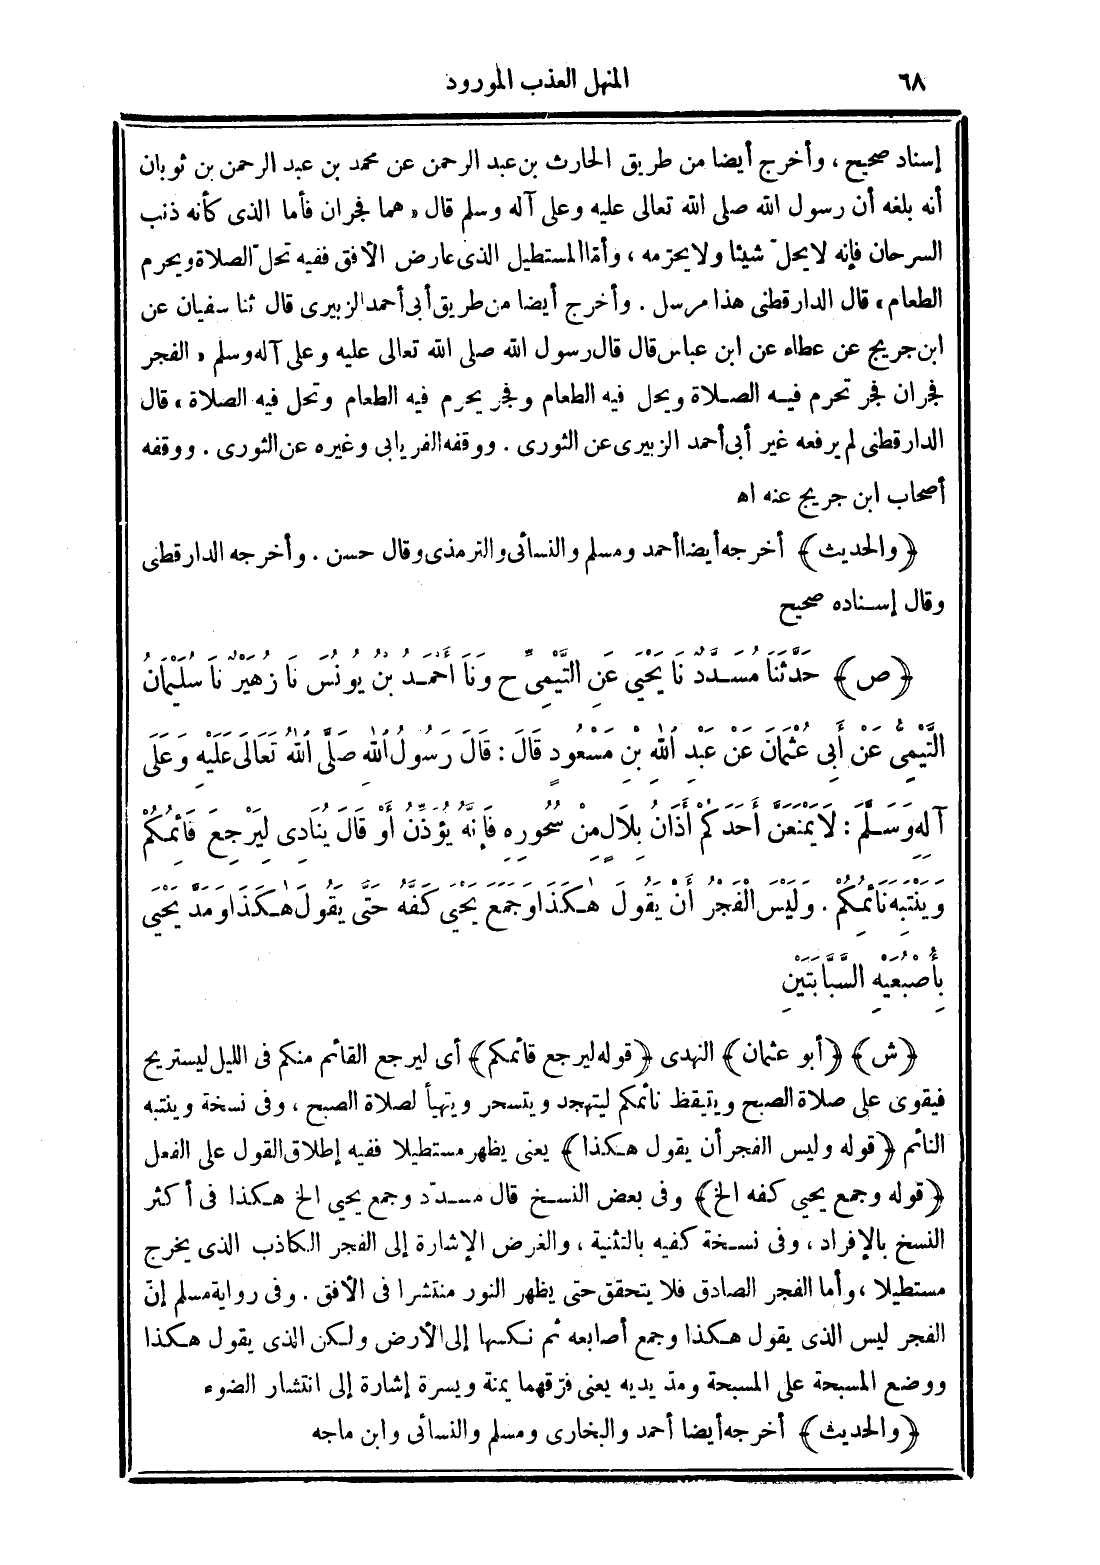 ٦٨
المنهل العذب المورود
إسناد صحيح ، وأخرج أيضا من طريق الحارث بن عبد الرحمن عن محمد بن عبد الرحمن بن ثوبان
أنه بلغه أن رسول الله صلى الله تعالى عليه وعلى آله وسلم قال « هما فجران فأما الذى كأنه ذنب
السرحان فإنه لايحلّ شيئا ولايحرّمه ، وأمّا المستطيل الذى عارض الأفق ففيه تحلّ الصلاة ويحرم
الطعام » قال الدارقطنى هذا مرسل . وأخرج أيضا من طريق أبى أحمد الزبيرى قال ثنا سفيان عن
ابن جريج عن عطاء عن ابن عباس قال قال رسول الله صلى الله تعالى عليه وعلى آله وسلم « الفجر
فجران فجر تحرم فيه الصلاة ويحل فيه الطعام وفجر يحرم فيه الطعام وتحل فيه الصلاة » قال
الدارقطنى لم يرفعه غير أبى أحمد الزبيرى عن الثورى . ووقفه الفريابى وغيره عن الثورى . ووقفه
أصحاب ابن جريج عنه اه
﴿والحديث﴾ أخرجه أيضا أحمد ومسلم والنسائى والترمذى وقال حسن . وأخرجه الدارقطنى
وقال إسناده صحيح
﴿ص﴾ حَدَّثَنَا مُسَدَّدٌ نَا يَحْيَى عَنِ التَّيْمِىِّ ح وَنَا أَحْمَدُ بْنُ يُونُسَ نَا زُهَيْرٌ نَا سُلَيْمَانُ
التَّيْمِىُّ عَنْ أَبِى عُثْمَانَ عَنْ عَبْدِ اللهِ بْنِ مَسْعُودٍ قَالَ : قَالَ رَسُولُ اللهِ صَلَّى اللهُ تَعَالَى عَلَيْهِ وَعَلَى
آلِهِ وَسَلَّمَ : لَا يَمْنَعَنَّ أَحَدَكُمْ أَذَانُ بِلَالٍ مِنْ سُحُورِهِ فَإِنَّهُ يُؤَذِّنُ أَوْ قَالَ يُنَادِى لِيَرْجِعَ قَائِمُكُمْ
وَيَنْتَبِهَ نَائِمُكُمْ . وَلَيْسَ الْفَجْرُ أَنْ يَقُولَ هٰكَذَا وَجَمَعَ يَحْيَى كَفَّهُ حَتَّى يَقُولَ هٰكَذَا وَمَدَّ يَحْيَى
بِأُصْبُعَيْهِ السَّبَّابَتَيْنِ
﴿ش﴾ ﴿أبو عثمان﴾ النهدى ﴿قوله ليرجع قائمكم﴾ أى ليرجع القائم منكم فى الليل ليستريح
فيقوى على صلاة الصبح ويتيقظ نائمكم ليتهجد ويتسحر ويتهيأ لصلاة الصبح ، وفى نسخة وينتبه
النائم ﴿قوله وليس الفجر أن يقول هكذا﴾ يعنى يظهر مستطيلا ففيه إطلاق القول على الفعل
﴿قوله وجمع يحيى كفه الخ﴾ وفى بعض النسخ قال مسدّد وجمع يحيى الخ هكذا فى أكثر
النسخ بالإفراد ، وفى نسخة كفيه بالتثنية ، والغرض الإشارة إلى الفجر الكاذب الذى يخرج
مستطيلا ، وأما الفجر الصادق فلا يتحقق حتى يظهر النور منتشرا فى الأفق . وفى رواية مسلم إنّ
الفجر ليس الذى يقول هكذا وجمع أصابعه ثم نكسها إلى الأرض ولكن الذى يقول هكذا
ووضع المسبحة على المسبحة ومدّ يديه يعنى فرّقهما يمنة ويسرة إشارة إلى انتشار الضوء
﴿والحديث﴾ أخرجه أيضا أحمد والبخارى ومسلم والنسائى وابن ماجه